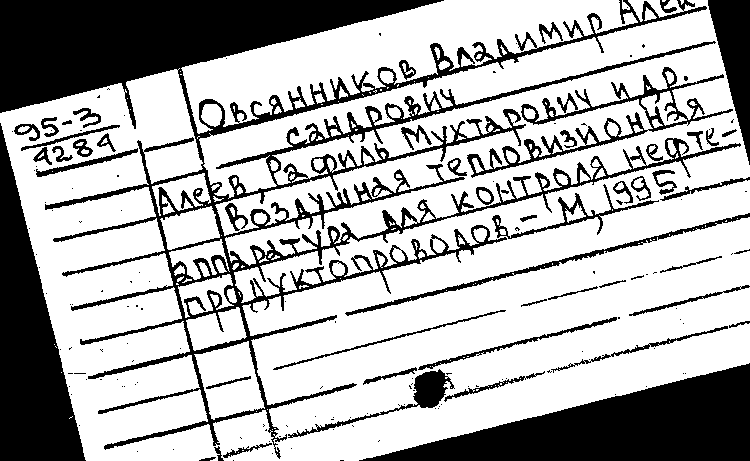 95-3
4284
Овсянников, Владимир Алек
сандрович
Алеев, Рафиль Мухтарович и др.
Воздушная тепловизионная
аппаратура для контроля нефте-
продуктопроводов.- М, 1995.